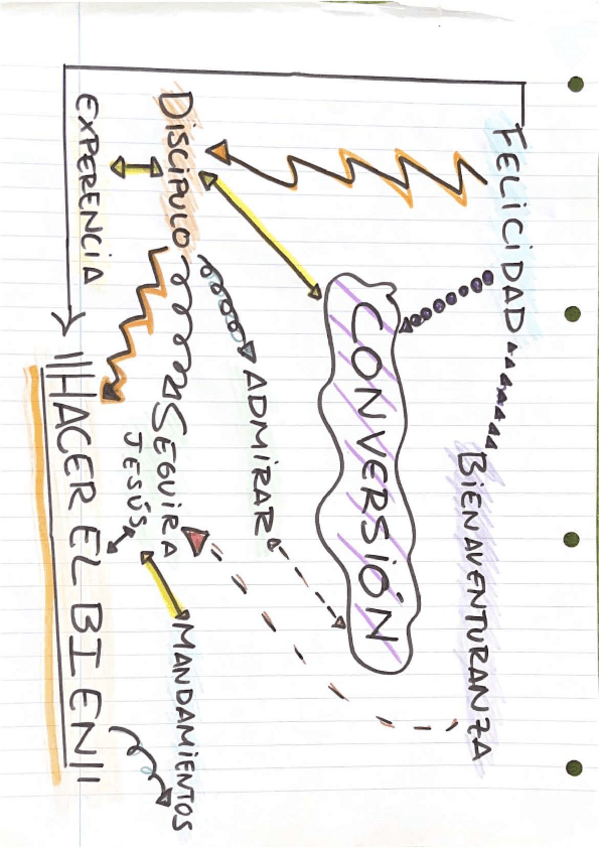 FELICIDAD
BIENAVENTURANZA
CONVERSIÓN
ADMIRAR
DISCÍPULO
SEGUIR A
JESÚS
MANDAMIENTOS
EXPERENCIA
||HACER EL BIEN||